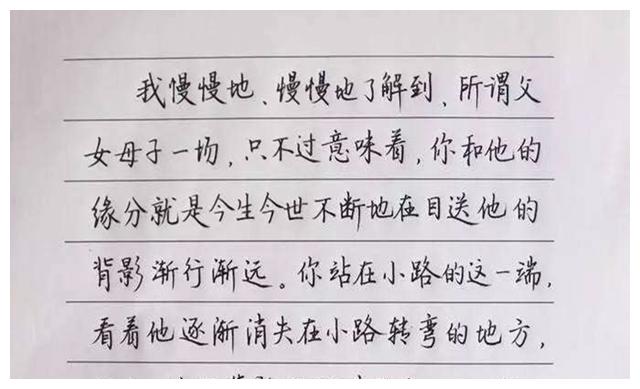 我慢慢地、慢慢地了解到，所谓父
女母子一场，只不过意味着，你和他的
缘分就是今生今世不断地在目送他的
背影渐行渐远。你站在小路的这一端，
看着他逐渐消失在小路转弯的地方，